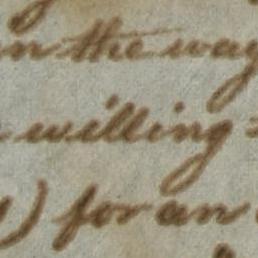 in the way
willing
) for an